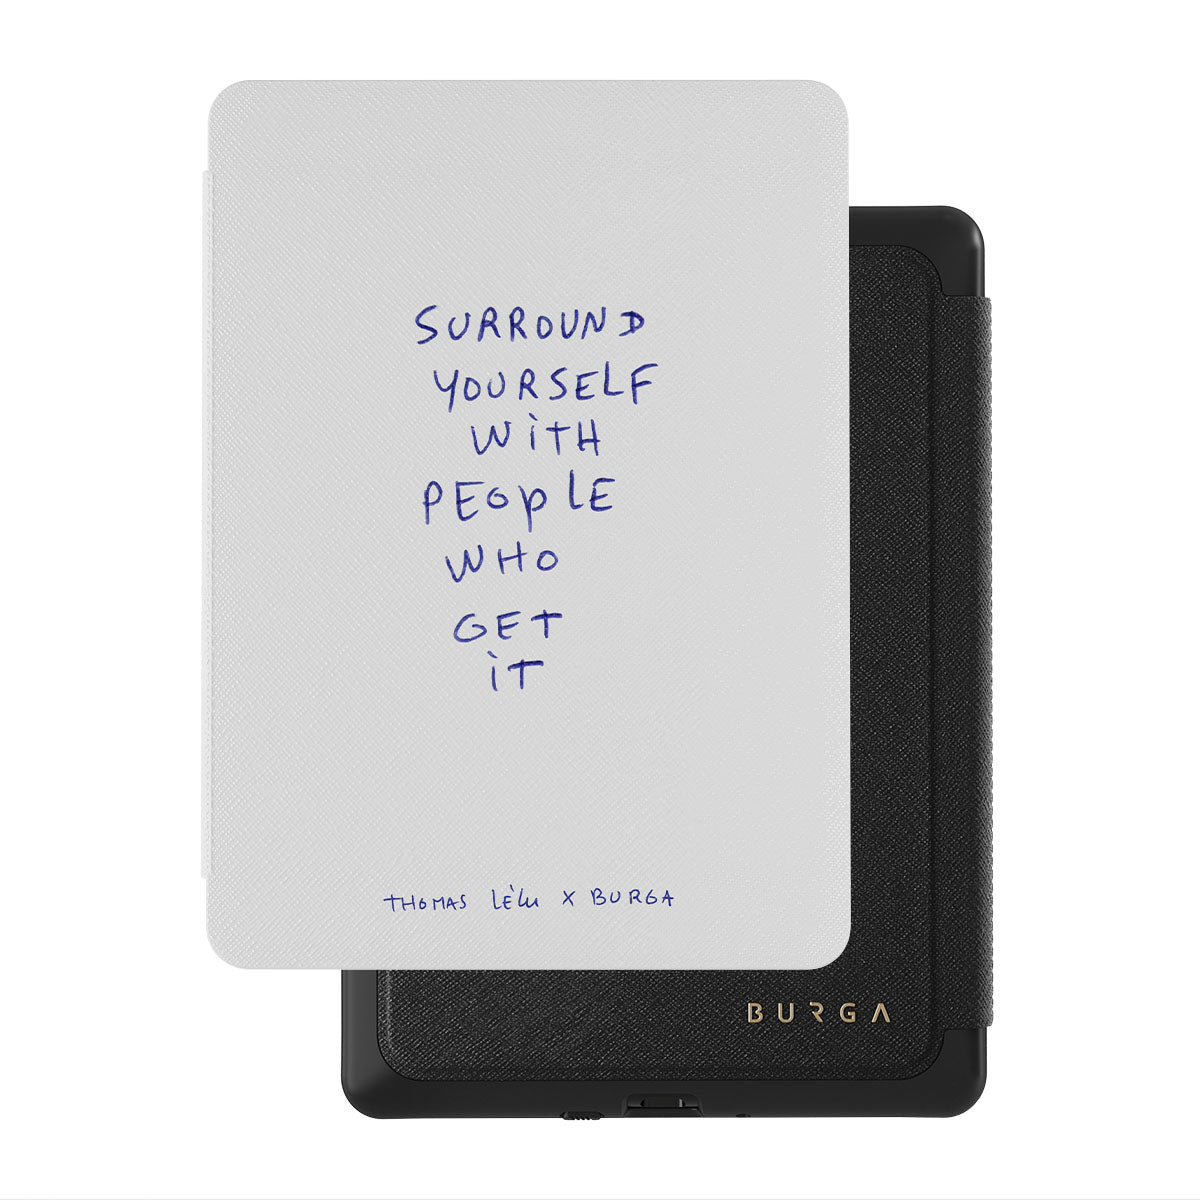 SURROUND
YOURSELF
WiTH
PEOplE
WHO
GET
iT
THOMAS LÉLu X BURGA
BURGA